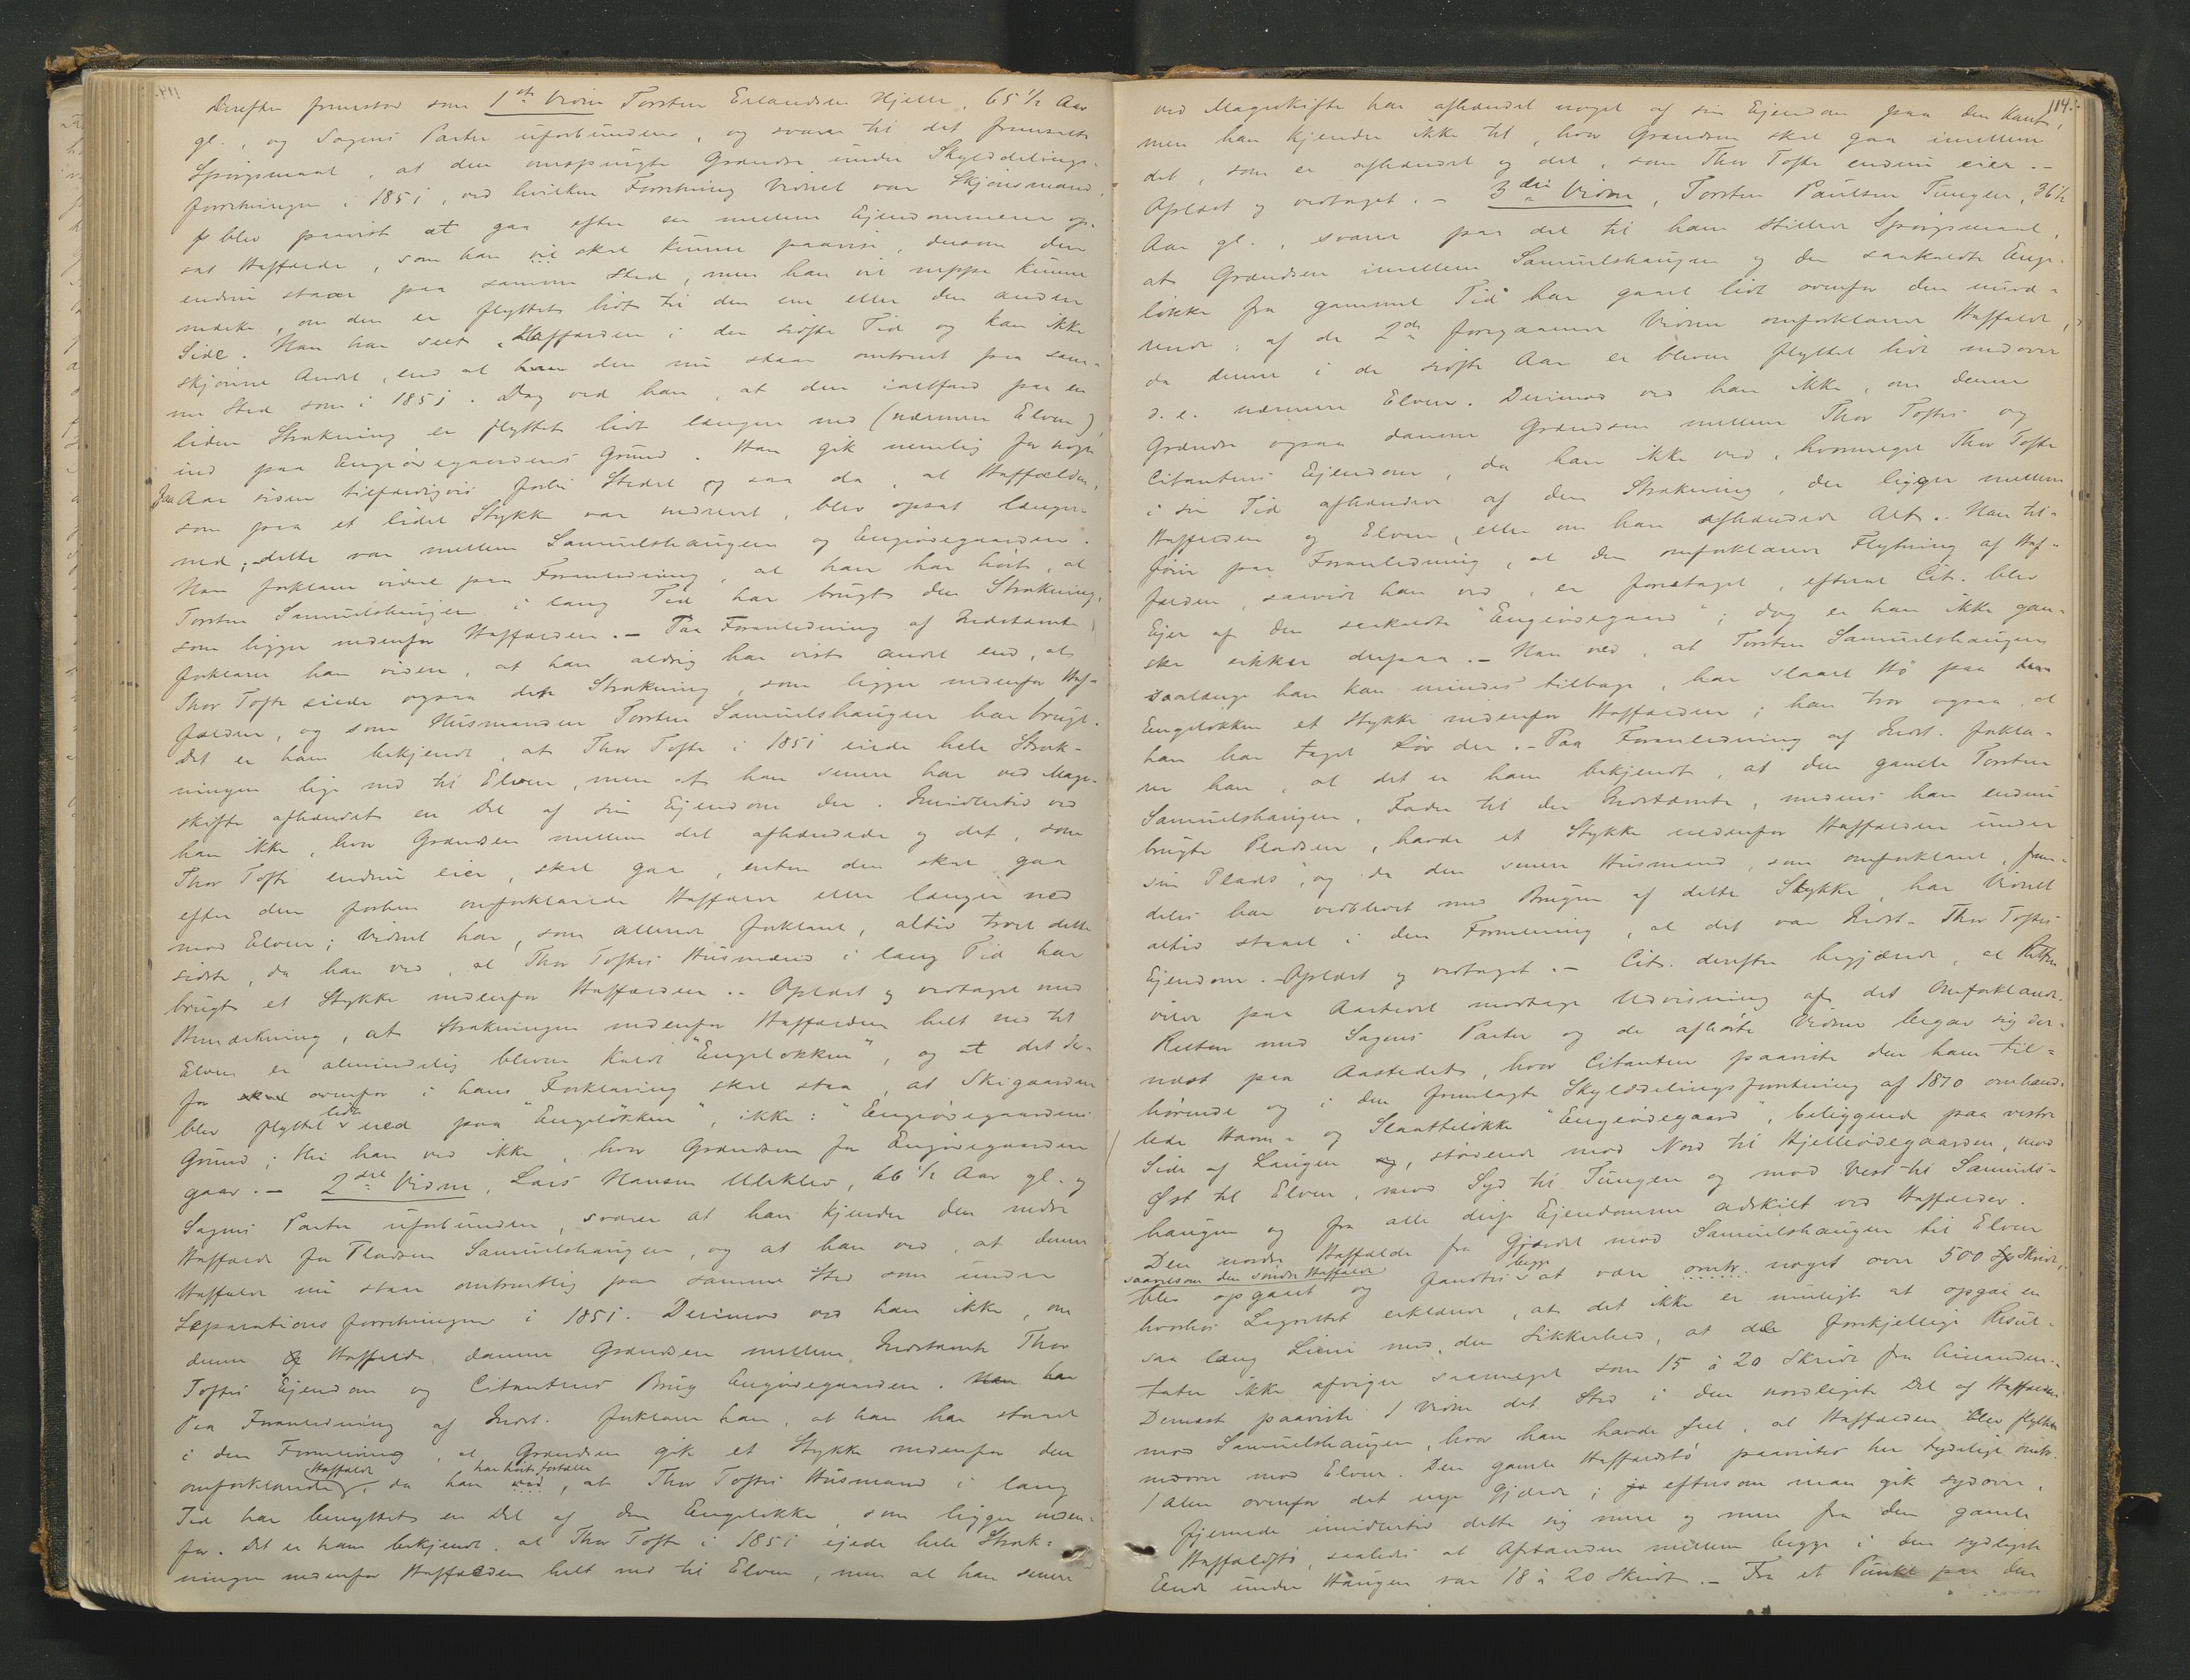 Derefter fremstod som 1ste Vidne Torsten Erlandsen Hjelle, 65 1/2 Aar
gl., og Sagens Parter uforbunden, og svarer til det fremsatte
Spørgsmaal, at den omspurgte Grændse under Skylddelings-
forretningen i 1851, ved hvilken Forretning Vidnet var Skjønsmand,
blev paavist at gaa efter en mellem Ejendommene op-
sat Haffælde, som han vil skal kunne paavise, dersom den
endnu staar paa samme Sted, men han vil neppe kunne
mærke, om den er flyttet lidt til den ene eller den anden
Side. Han har seet Haffælden i den sidste Tid og kan ikke
skjønne Andet, end at den nu staar omtrent paa sam-
me Sted som i 1851. Dog ved han, at den ialfald paa en
liden Strækning er flyttet lidt længer ned (nærmere Elven),
ind paa Engiødegaardens Grund. Han gik nemlig for nogle
faa Aar siden tilfældigvis forbi Stedet og saa da, at Haffælden,
som paa et lidet Stykke var nedrevet, blev opsat længer
ned; dette var mellem Samuelshaugen og Engiødegaarden.
Han forklarer videre paa Foranledning, at han har hørt, at
Torsten Samuelshaugen i lang Tid har brugt den Strækning,
som ligger nedenfor Haffælden. - Paa Foranledning af Indstævnte
forklarer han videre, at han aldrig har vidst andet end, at
Thor Tofte eiede ogsaa den Strækning, som ligger nedenfor Haf-
fælden, og som Husmanden Torsten Samuelshaugen har brugt.
Det er ham bekjendt, at Thor Tofte i 1851 eiede hele Stræk-
ningen lige ned til Elven, men at han senere har ved Mage-
skifte afhændet en Del af sin Ejendom der. Imidlertid ved
han ikke, hvor Grændsen mellem det afhændede og det, som
Thor Tofte endnu eier, skal gaa, enten den skal gaa
efter den forhen omforklarede Haffælde eller længer ned
mod Elven; Vidnet har, som allerede forklaret, altid troet dette
sidste, da han ved, at Thor Toftes Husmænd i lang Tid har
brugt et Stykke nedenfor Haffælden. - Oplæst og vedtaget med
Bemærkning, at Strækningen nedenfor Haffælden helt ned til
Elven er almindelig bleven kaldt "Engeløkken", og at det der-
for ovenfor i hans Forklaring skal staa, at Skigaarden
blev flyttet lidt ned paa "Engeløkken", ikke: "Engiødegaardens
Grund; thi han ved ikke, hvor Grændsen for Engiødegaarden
gaar. - 2det Vidne, Lars Hansen Uleklev, 66 1/2 Aar gl. og
Sagens Parter uforbunden, svarer at han kjender den nedre
Haffælde for Pladsen Samuelshaugen, og at han ved, at denne
Haffælde nu staar omtrentlig paa samme Sted som under
Separationsforretningen i 1851. Derimod ved han ikke, om
denne Haffælde danner Grændsen mellem Indstævnte Thor
Toftes Ejendom og Citantens Brug Engiødegaarden. Han har
Paa Foranledning af Indst. forklarer han, at han har staaet
i den Formening, at Grændsen gik et Stykke nedenfor den
omforklarede Haffælde, da han ved har hørt fortælle, at Thor Toftes Husmænd i lang
Tid har benyttet en Del af den Engeløkke, som ligger neden-
for. Det er ham bekjendt, at Thor Tofte i 1851 ejede hele Stræk-
ningen nedenfor Haffælden helt ned til Elven, men at han senere
114.
ved Mageskifte har afhændet noget af sin Ejendom paa den Kant,
men han kjender ikke til, hvor Grændsen skal gaa imellem
det, som er afhændet og det, som Thor Tofte endnu eier. -
Oplæst og vedtaget. - 3die Vidne, Torsten Paulsen Tungen, 36 1/2
Aar gl., svarer paa det til ham stillede Spørgsmaal,
at Grændsen imellem Samuelshaugen og den saakaldte Enge-
løkke fra gammel Tid har gaaet lidt ovenfor den nuvæ-
rende, af de 2de foregaaende Vidner omforklarede Haffælde,
da denne i de sidste Aar er bleven flyttet lidt nedover
d. e. nærmere Elven. Derimod ved han ikke, om denne
Grændse ogsaa danner Grændsen mellem Thor Toftes og
Citantens Ejendom, da han ikke ved, hvormeget Thor Tofte
i sin Tid afhændede af den Strækning, der ligger mellem
Haffælden og Elven, eller om han afhændede Alt. Han til-
føier paa Foranledning, at den omforklarede Flytning af Haf-
fælden, saavidt han ved, er foretaget, efterat Cit. blev
Ejer af den saakaldte "Engiødegaard"; dog er han ikke gan-
ske sikker derpaa. - Han ved, at Torsten Samuelshaugen
saalænge han kan mindes tilbage, har slaaet Hø paa
Engeløkken et Stykke nedenfor Haffælden; han tror ogsaa, at
han har taget Løv der. - Paa Foranledning af Indst. forkla-
rer han, at det er ham bekjendt, at den gamle Torsten
Samuelshaugen, Fader til den Indstævnte, medens han endnu
brugte Pladsen, havde et Stykke nedenfor Haffælden under
sin Plads, og da den senere Husmand, som omforklaret, frem-
deles har vedblevet med Brugen af dette Stykke, har Vidnet
altid staaet i den Formening, at det var Indst. Thor Toftes
Ejendom. - Oplæst og vedtaget. - Cit. derefter begjærede, at Retten
vilde paa Aastedet modtage Udvisning af det Omforklarede.
Retten med Sagens Parter og de afhørte Vidner begav sig der-
næst paa Aastedet, hvor Citanten paaviste den ham til-
hørende og i den fremlagte Skylddelingsforretning af 1870 omhand-
lede Havn- og Slaatteløkke "Engiødegaard", beliggende paa vestre
Side af Laugen, stødende mod Nord til Hjelleiødegaarden, mod
Øst til Elven, mod Syd til Tungen og mod Vest til Samuels-
haugen og fra alle disse Ejendomme adskilt ved Haffælder.
Den nordre Haffælde fra Gjærdet mod Samuelshaugen til Elven
saavelsom den søndre Haffælde
blev opgaaet og fandtes begge at være omtr. noget over 500 Skridt,
hvorhos Lagrettet erklærede, at det ikke er muligt at opgaa en
saa lang Linie med den Sikkerhed, at de forskjellige Resul-
tater ikke afviger saameget som 15 à 20 Skridt fra hinanden. -
Dernæst paaviste 1 Vidne det Sted i den nordligste Del af Haffælden
mod Samuelshaugen, hvor han havde seet, at Haffælden blev flyttet
nedover mod Elven. Den gamle Haffældstø paavistes her tydelig omtr.
1 Alen ovenfor det nye Gjærde; eftersom man gik sydover,
fjernede imidlertid dette sig mere og mere fra den gamle
Haffældstø, saaledes at Afstanden mellem begge i den sydligste
Ende under Haugen var 18 à 20 Skridt. - Fra et Punkt paa den